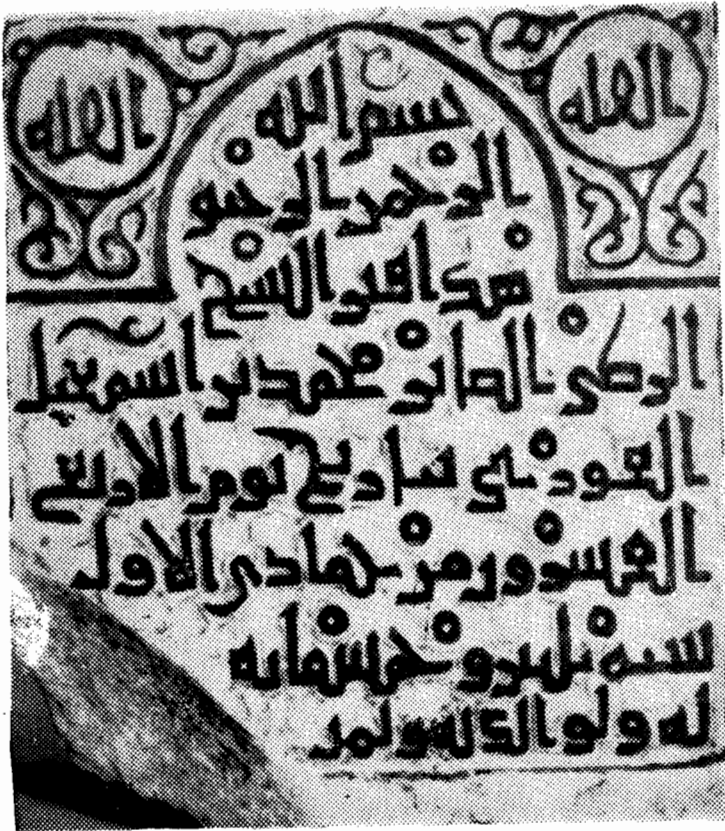 الله
الله
بسم الله
الرحمن الرحيم
هذا قبر الشيخ
الرضي محمد بن اسمعيل
تاريخ يوم الاربع
العشرون من جمادى الاول
سنه ثلثين وخمسمايه
له ولوالديه ولمن